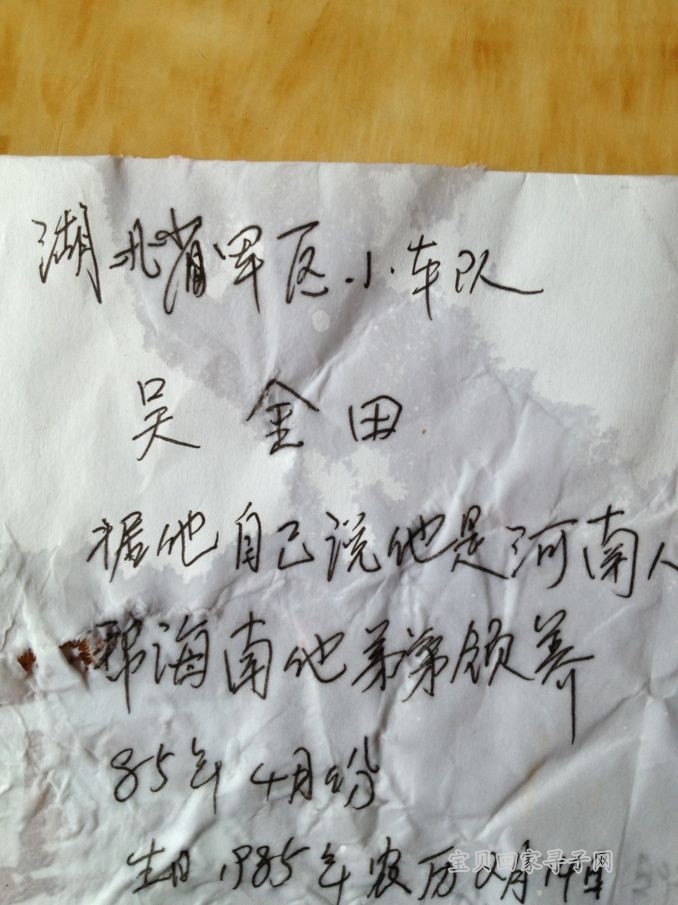 湖北省军区小车队
吴金田
据他自己说他是河南人
帮海南他弟弟领养
85年4月份
生日1985年农历2月14日
宝贝回家寻子网